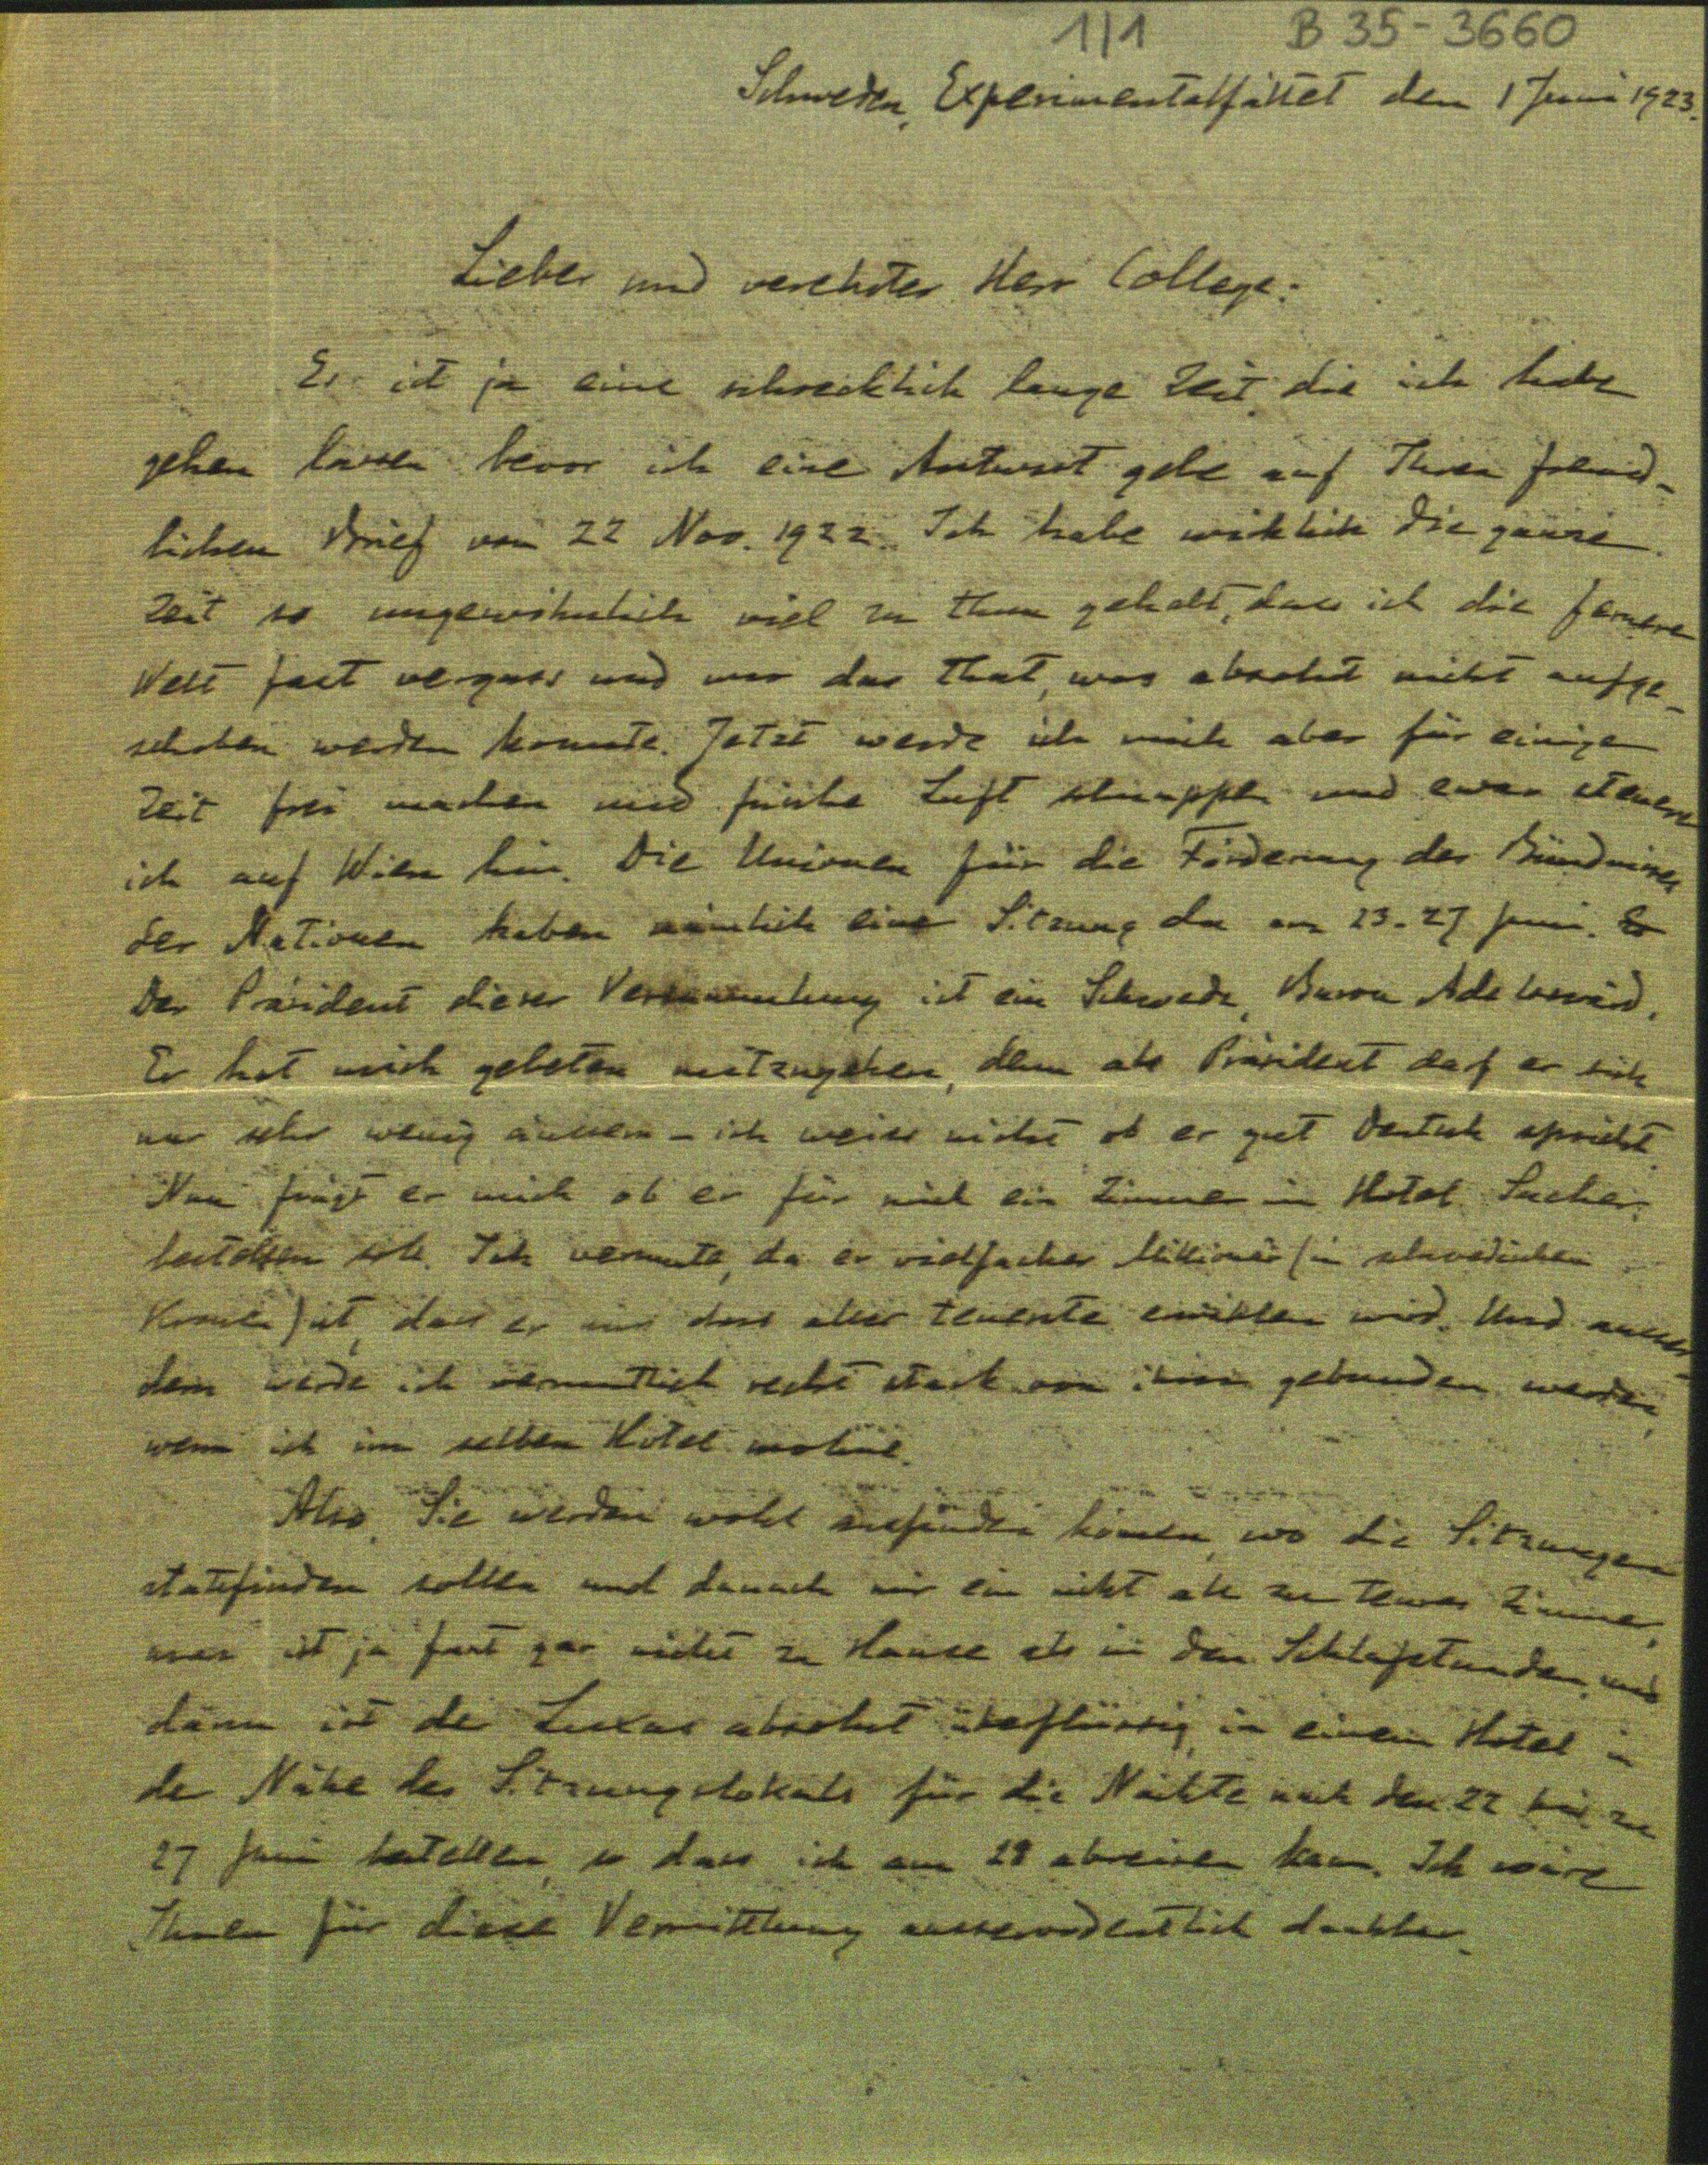 1/1 B 35-3660
Schweden, Experimentalfältet den 1 Juni 1923.
Lieber und verehrter Herr College:
Es ist ja eine schrecklich lange Zeit, die ich habe
gehen lassen bevor ich eine Antwort gebe auf Ihren freund-
lichen Brief von 22 Nov. 1922. Ich habe wirklich die ganze
Zeit so ungewöhnlich viel zu thun gehabt, dass ich die fernere
Welt fast vergass und nur das that, was absolut nicht aufge-
schoben werden konnte. Jetzt werde ich mich aber für einige
Zeit frei machen und frische Luft schnappen und zwar steuere
ich auf Wien hin. Die Unionen für die Förderung des Bündnisses
der Nationen haben nämlich eine Sitzung da am 23-27 Juni.
Der Präsident dieser Versammlung ist ein Schwede, Baron Adelsvärd.
Er hat mich gebeten mitzugehen, denn als Präsident darf er sich
nur sehr wenig äussern - ich weiss nicht ob er gut Deutsch spricht.
Nun frägt er mich ob er für mich ein Zimmer in Hotel Sacher
bestellen soll. Ich vermute, da er vielfacher Millionär (in schwedischen
Kronen) ist, dass er uns das aller teuerste wird. Und ausser-
dem werde ich vermutlich recht stark von ihm gebunden werden,
wenn ich im selben Hotel wohne.
Also, Sie werden wohl ausfinden können, wo die Sitzungen
stattfinden sollen und danach mir ein nicht all zu teures Zimmer,
man ist ja fast gar nicht zu Hause als in den Schlafstunden, und
dann ist der Luxus absolut überflüssig, in einem Hotel in
der Nähe des Sitzungslokals für die Nächte nach den 22 bis zu
27 Juni bestellen, so dass ich am 28 abreisen kann. Ich wäre
Ihnen für diese Vermittlung ausserordentlich dankbar.